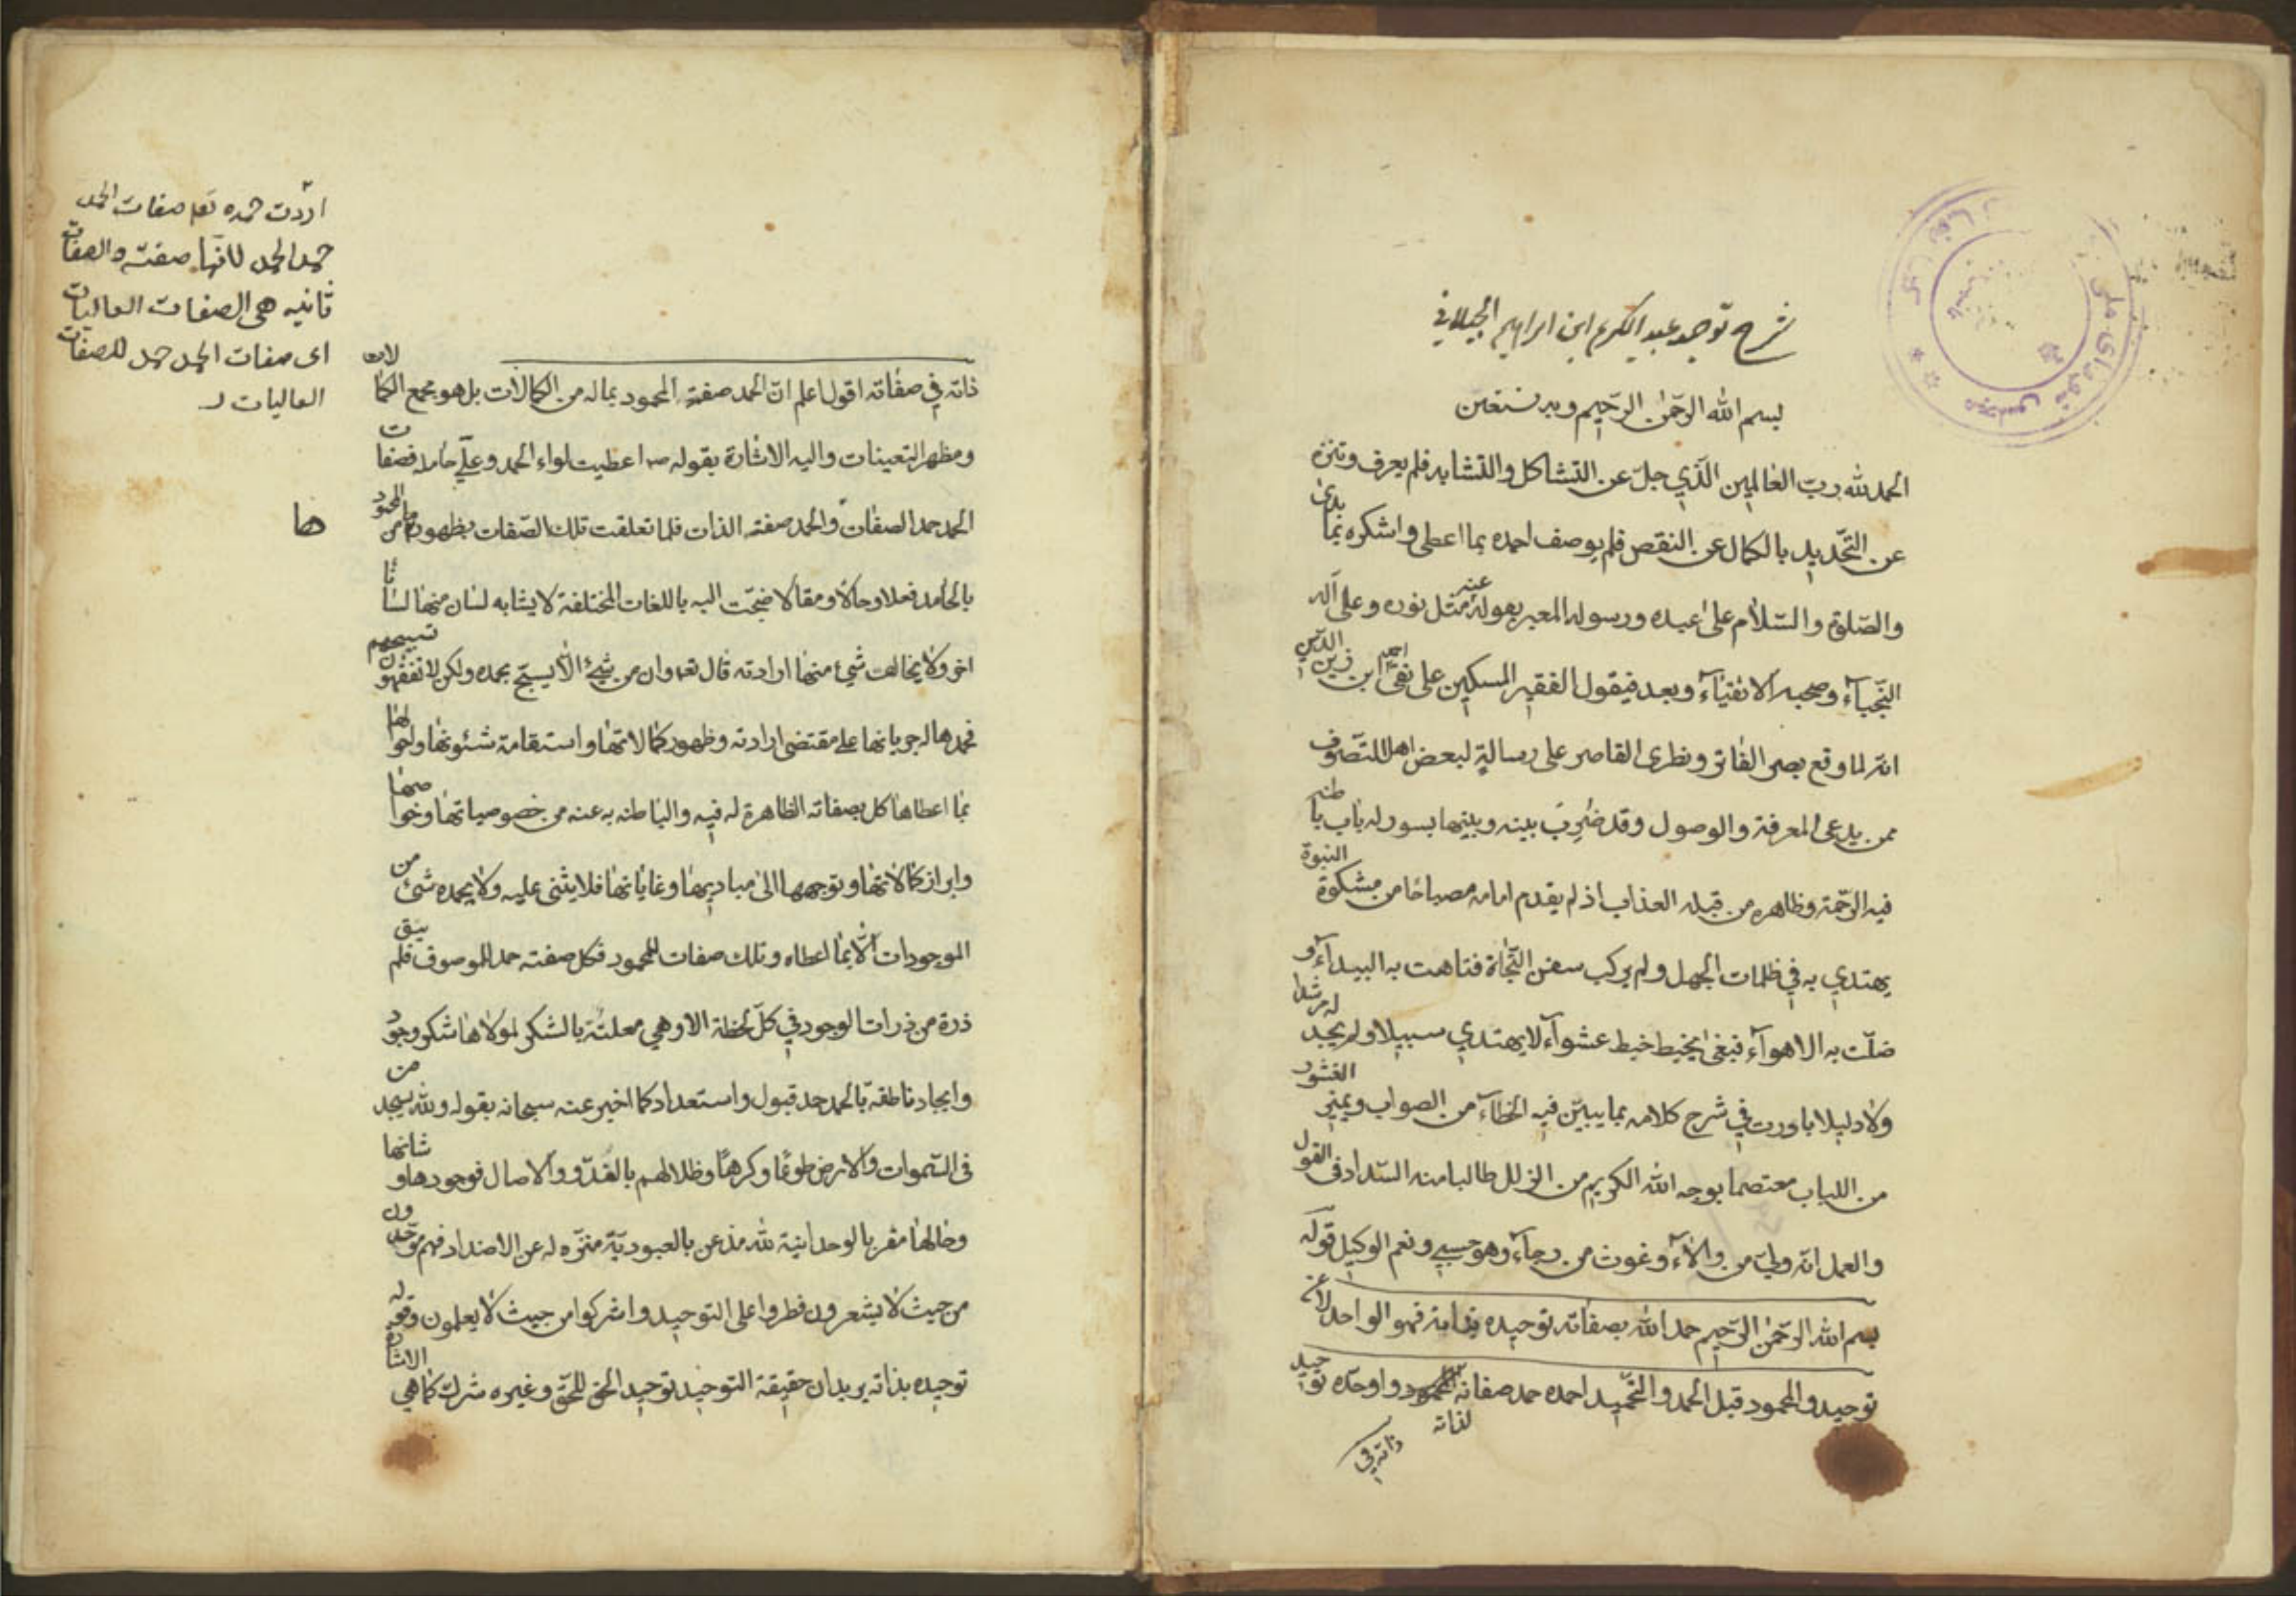 شرح توحيد عبد الكريم ابن ابراهيم الجيلاني
بسم الله الرّحمٰن الرّحيم وبه نستعين
الحمد لله ربّ العٰالمين الّذي جلّ عن التشاكل والتشابه فلم يعرف وتنزه
عن التّحديد بالكمال عن النقص فلم يوصف احمده بما اعطى واشكره بمٰا بدیٰ
والصّلوة والسّلام علیٰ عبده ورسوله المعبر عنه بقوله مثل نوره وعلى آله
النّجبآء وصحبه الاتقيآء وبعد فيقول الفقير المسكين على نقى ابن احمد زين الدّين
انّه لما وقع بصرى الفاتر ونظرى القاصر على رسالة لبعض اهل التصّوف
ممن يدعى المعرفة والوصول وقد ضُرِبَ بينه وبينها بسور له باب باطنه
فيه الرّحمة وظاهره من قبله العذاب اذ لم يقدم امامه مصباحًا من مشكوة النبوة
يهتدي به في ظلمات الجهل ولم يركب سفن النّجاة فتاهت به البيدآء و
ضلّت به الاهوآء فبقىٰ يخبط خبط عشوآء لا يهتدي سبيلا ولم يجد له مرشدا
ولا دليلا بادرت في شرح كلامه بما يبيّن فيه الخطآء من الصواب ويميز القشور
من اللباب معتصما بوجه الله الكريم من الزلل طالبا منه السّداد فى القول
والعمل انّه وليّ من والاٰه وغوث من رجآء وهو حسبي ونعم الوكيل قوله
بسم الله الرّحمٰن الرّحيم حمد الله بصفاته توحيده بذاته فهو الواحد لا عن
توحيد والمحمود قبل الحمد والتّحميد احمده حمد صفاته واوحّده توحيد
لذاته
ذاته في
ذاته في صفاته اقول اعلم انّ الحمد صفة المحمود بماله من الكمالات بل هو مجمع الكمالات
ومظهر التعينات واليه الاشارة بقوله ص اعطيت لواء الحمد وعلّي حامله فصفات
الحمد حمد الصفات والحمد صفة الذات فلما تعلقت تلك الصّفات بظهورها من المحمود
بالحٰامد فعلا وحالًا ومقالا ضجّت اليه باللغات المختلفة لا يشابه لسان منهٰا لسانا
اخر ولا يخالف شئ منها ارادته قال تعه وان من شئ الّا يسبّح بحمده ولكن لا تفقهون تسبيحهم
فحمدها له جريانها على مقتضى ارادته وظهور كمالاتها واستقامة شئونها واحوالها
بمٰا اعطاها كل بصفاته الظاهرة له فيه والباطنه به عنه من خصوصياتها وخواصها
وابراز كمٰالاتهٰا وتوجهها الیٰ مباديها وغاياتها فلا يثنى عليه ولا يحمده شئ من
الموجودات الّا بما اعطاه وتلك صفات للمحمود فكل صفة حمد للموصوف فلم يبق
ذرة من ذرات الوجود في كلّ لحظة الا وهي معلنة بالشكر لمولاها شكر وجود
وايجاد ناطقة بالحمد حمد قبول واستعداد كما اخبر عنه سبحانه بقوله ولله يسجد من
فى السّموات والارض طوعًا وكرهًا وظلالهم بالغدّو والاصال فوجودها وشانها
وحالها مقر بالوحدانية لله مذعن بالعبوديّة منزّه له عن الاضداد فهم موحّدون
من حيث لا يشعرون فطروا على التوحيد واشركوا من حيث لا يعلمون وقوله
توحيده بذاته يريد ان حقيقة التوحيد توحيد الحق للحقّ وغيره شرك كما هي الاشارة
اردت حمده تعه صفات الحمد
حمد الحمد لانها صفته والصفات
ثانيه هى الصفات العاليات
اى صفات الحمد حمد للصفات
العاليات
ها